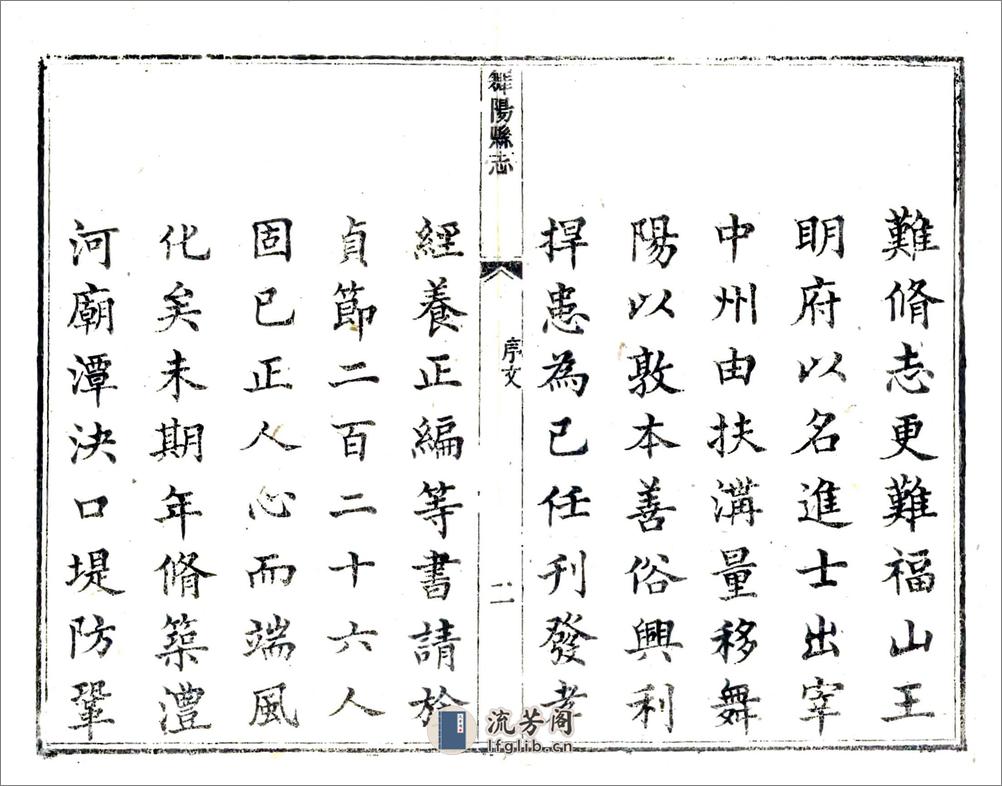 難脩志更難福山王
明府以名進士出宰
中州由扶溝量移舞
陽以敦本善俗興利
捍患為己任刊發孝
舞陽縣志
序文
二
經養正編等書請旌
貞節二百二十六人
固已正人心而端風
化矣未期年脩築澧
河廟潭決口堤防鞏
流芳阁
lfglib.cn